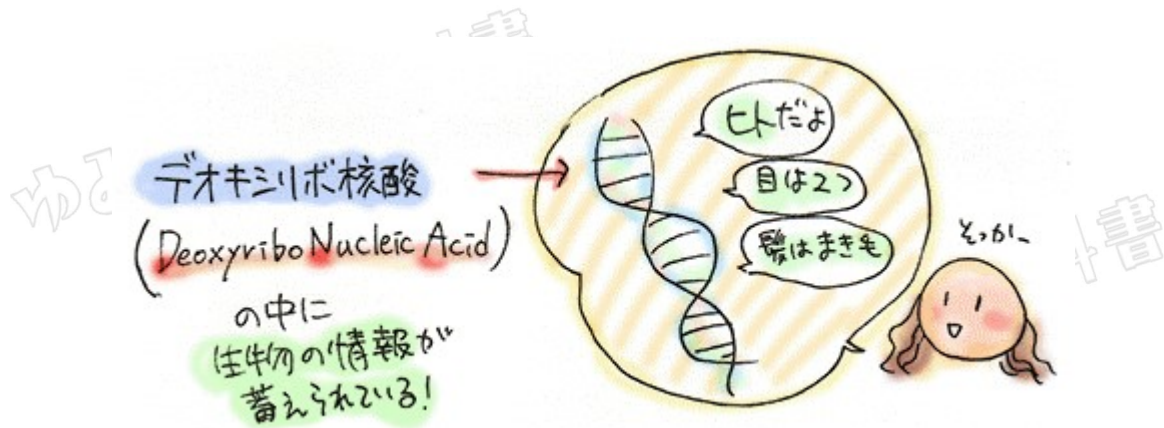 デオキシリボ核酸
(Deoxyribo Nucleic Acid)
の中に
生物の情報が
蓄えられている!
ヒトだよ
目は2つ
髪はまき毛
そっかー
書
ゆる
書